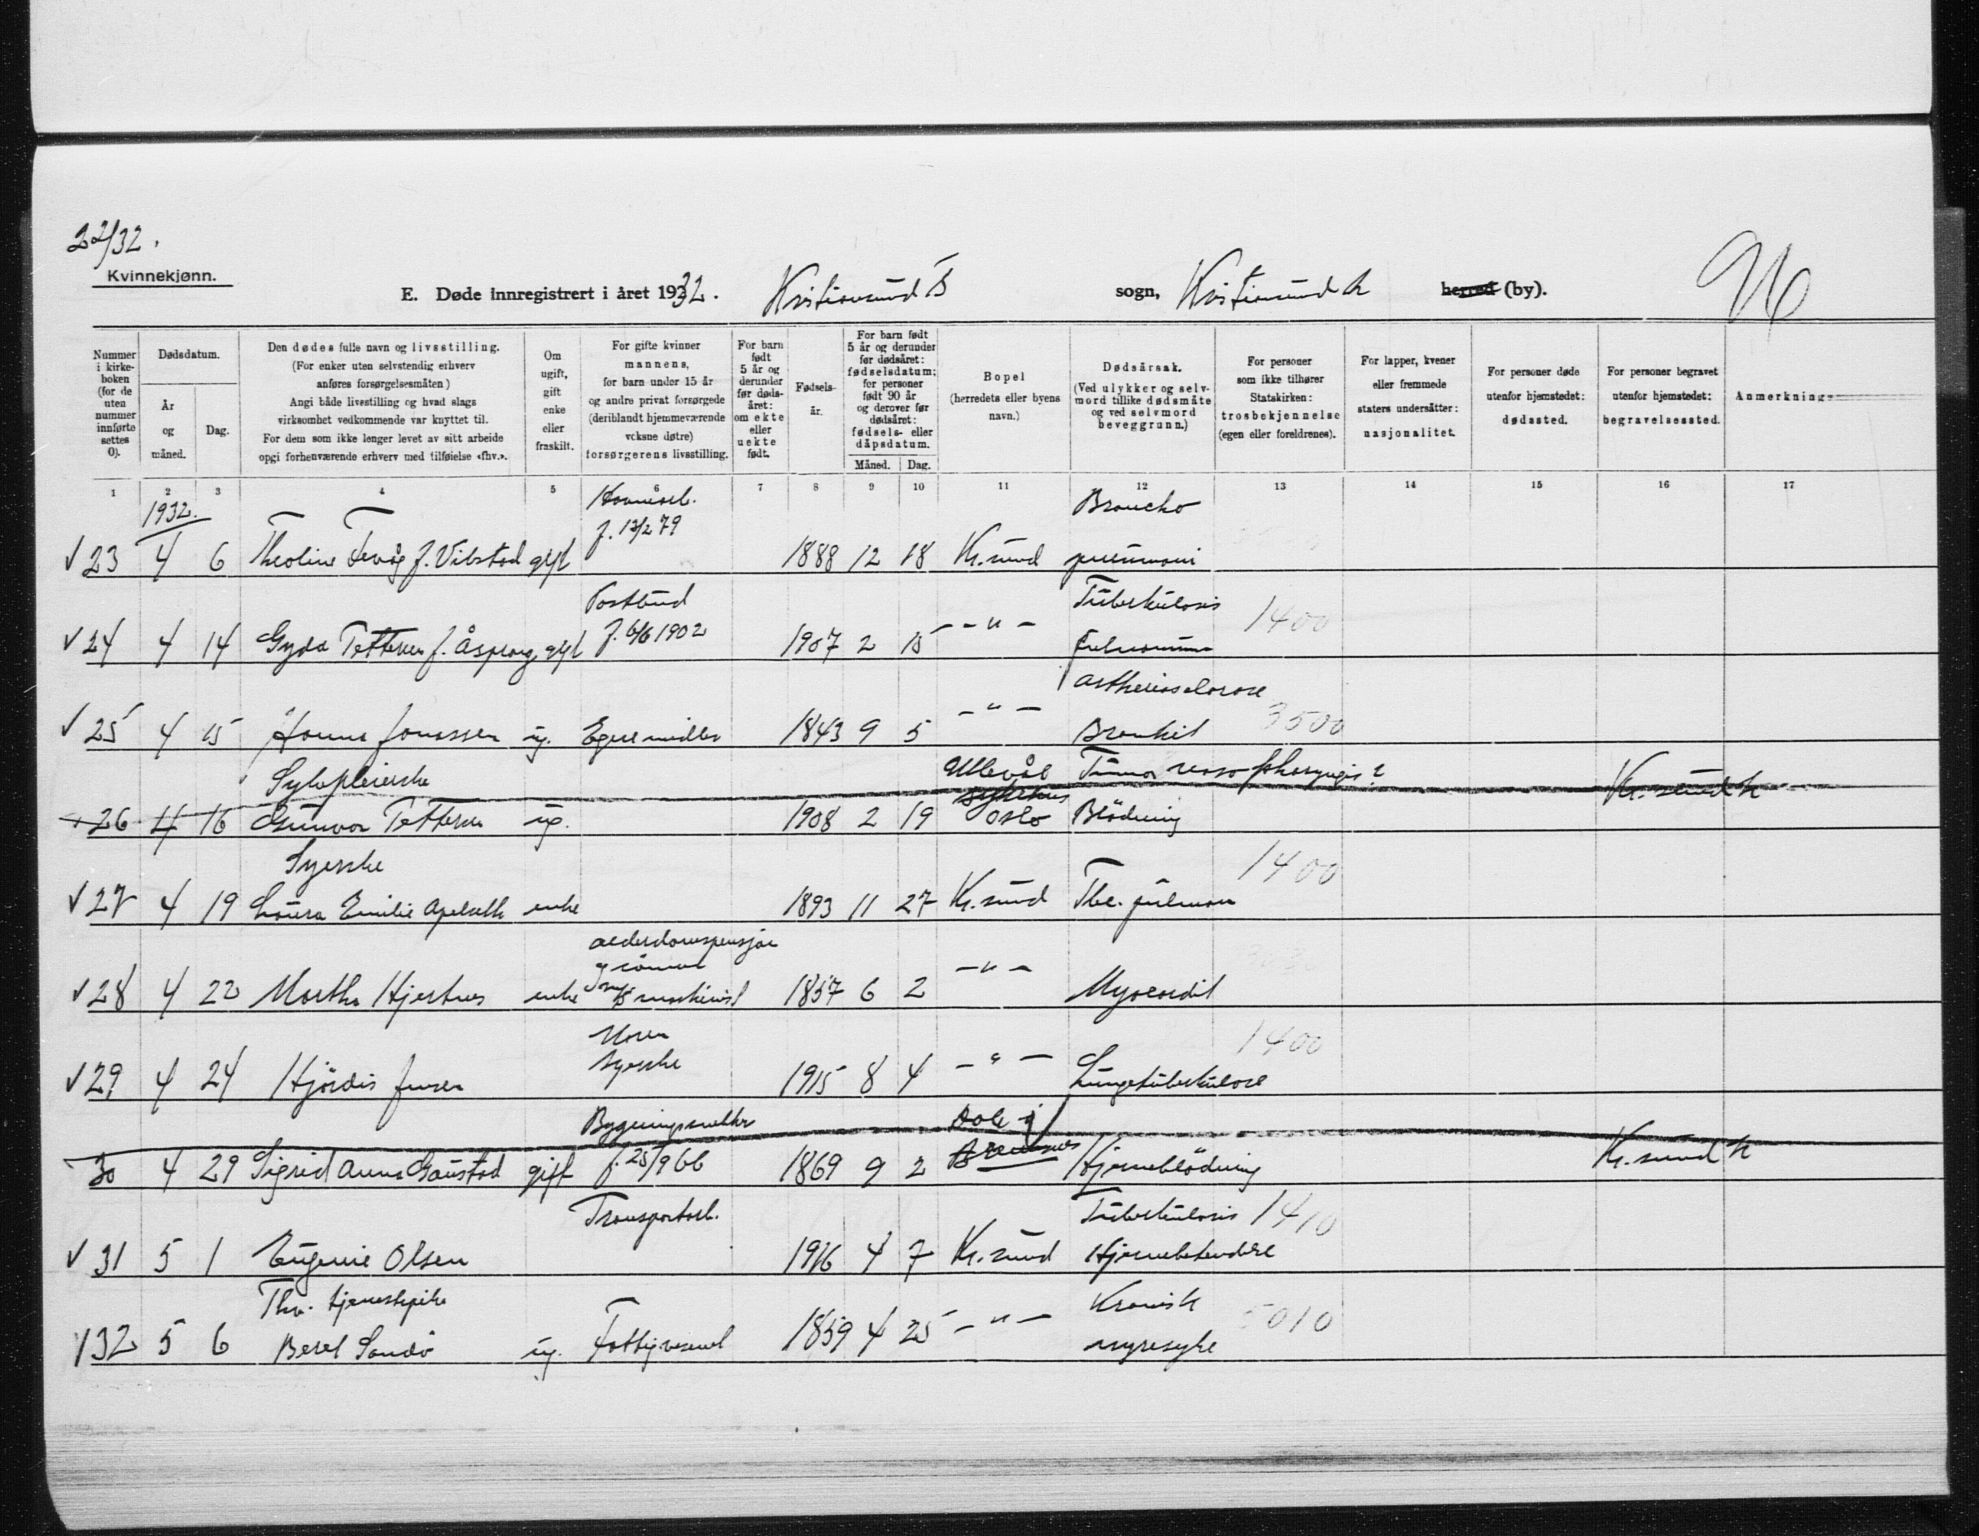 22/32.
Kvinnekjønn.
E. Døde innregistrert i året 1932. Kristiansund B sogn, Kristiansund N herred (by).
96
Nummer i kirkeboken (for de uten nummer innførte settes 0).
Dødsdatum.
År og måned.
Dag.
Den dødes fulle navn og livsstilling.
(For enker uten selvstendig erhverv anføres forsørgelsesmåten)
Angi både livsstilling og hvad slags virksomhet vedkommende var knyttet til.
For dem som ikke lenger levet av sitt arbeide opgi forhenværende erhverv med tilføielse «fhv.».
Om ugift, gift enke eller fraskilt.
For gifte kvinner mannens, for barn under 15 år og andre privat forsørgede (deriblandt hjemmeværende voksne døtre) forsørgerens livsstilling.
For barn født 5 år og derunder før dødsåret: om ekte eller uekte født.
Fødselsår.
For barn født 5 år og derunder før dødsåret: fødselsdatum; for personer født 90 år og derover før dødsåret: fødsels- eller dåpsdatum.
Måned. Dag.
Bopel
(herredets eller byens navn.)
Dødsårsak.
(Ved ulykker og selvmord tillike dødsmåte og ved selvmord beveggrunn.)
For personer som ikke tilhører Statskirken: trosbekjennelse (egen eller foreldrenes).
For lapper, kvener eller fremmede staters undersåtter: nasjonalitet.
For personer døde utenfor hjemstedet: dødssted.
For personer begravet utenfor hjemstedet: begravelsessted.
Anmerkninger
1 2 3 4 5 6 7 8 9 10 11 12 13 14 15 16 17
1932.
Havnearb. Broncho
f. 13/2 79
23 4 6 Theoline Fevåg f. Vilstad gift 1888 12 18 Kr.sund pneumoni
Postbud Tuberkulosis 1400
24 4 14 Gyda Petterson f. Åsprong gift f. 6/6 1902 1907 2 15 — " — pulmonum
artheriosclerose
25 4 15 Hanna Jonassen ug. Egne midler 1843 9 5 — " — Bronkit 3500
Sykepleierske Ullevål sykehus Tumor naso pharyngis?
26 4 16 Gunvor Petterson ug. 1908 2 19 Oslo Blødning Kr.sund N
Syerske 1400
27 4 19 Laura Emilie Apelseth enke 1893 11 27 Kr.sund Tbc. pulmon
alderdomspensjon
28 4 22 Martha Hjertnes enke maskinist 1857 6 2 — " — Myocardit
Moren 1400
syerske
29 4 24 Hjørdis Jensen 1915 8 4 — " — Lungetuberkulose
Bygningssnekker
30 4 29 Sigrid Anna Gaustad gift f. 25/9 66 1869 9 2 Bremsnes Hjerneblødning Kr.sund N
Transportarb. Tuberkulosis 1410
31 5 1 Eugenie Olsen 1916 4 7 Kr.sund Hjernebetendelse
Fhv. tjenestepike Kronisk 5010
32 5 6 Beret Sandø ug. Fattigvesenet 1859 4 25 — " — nyresyke